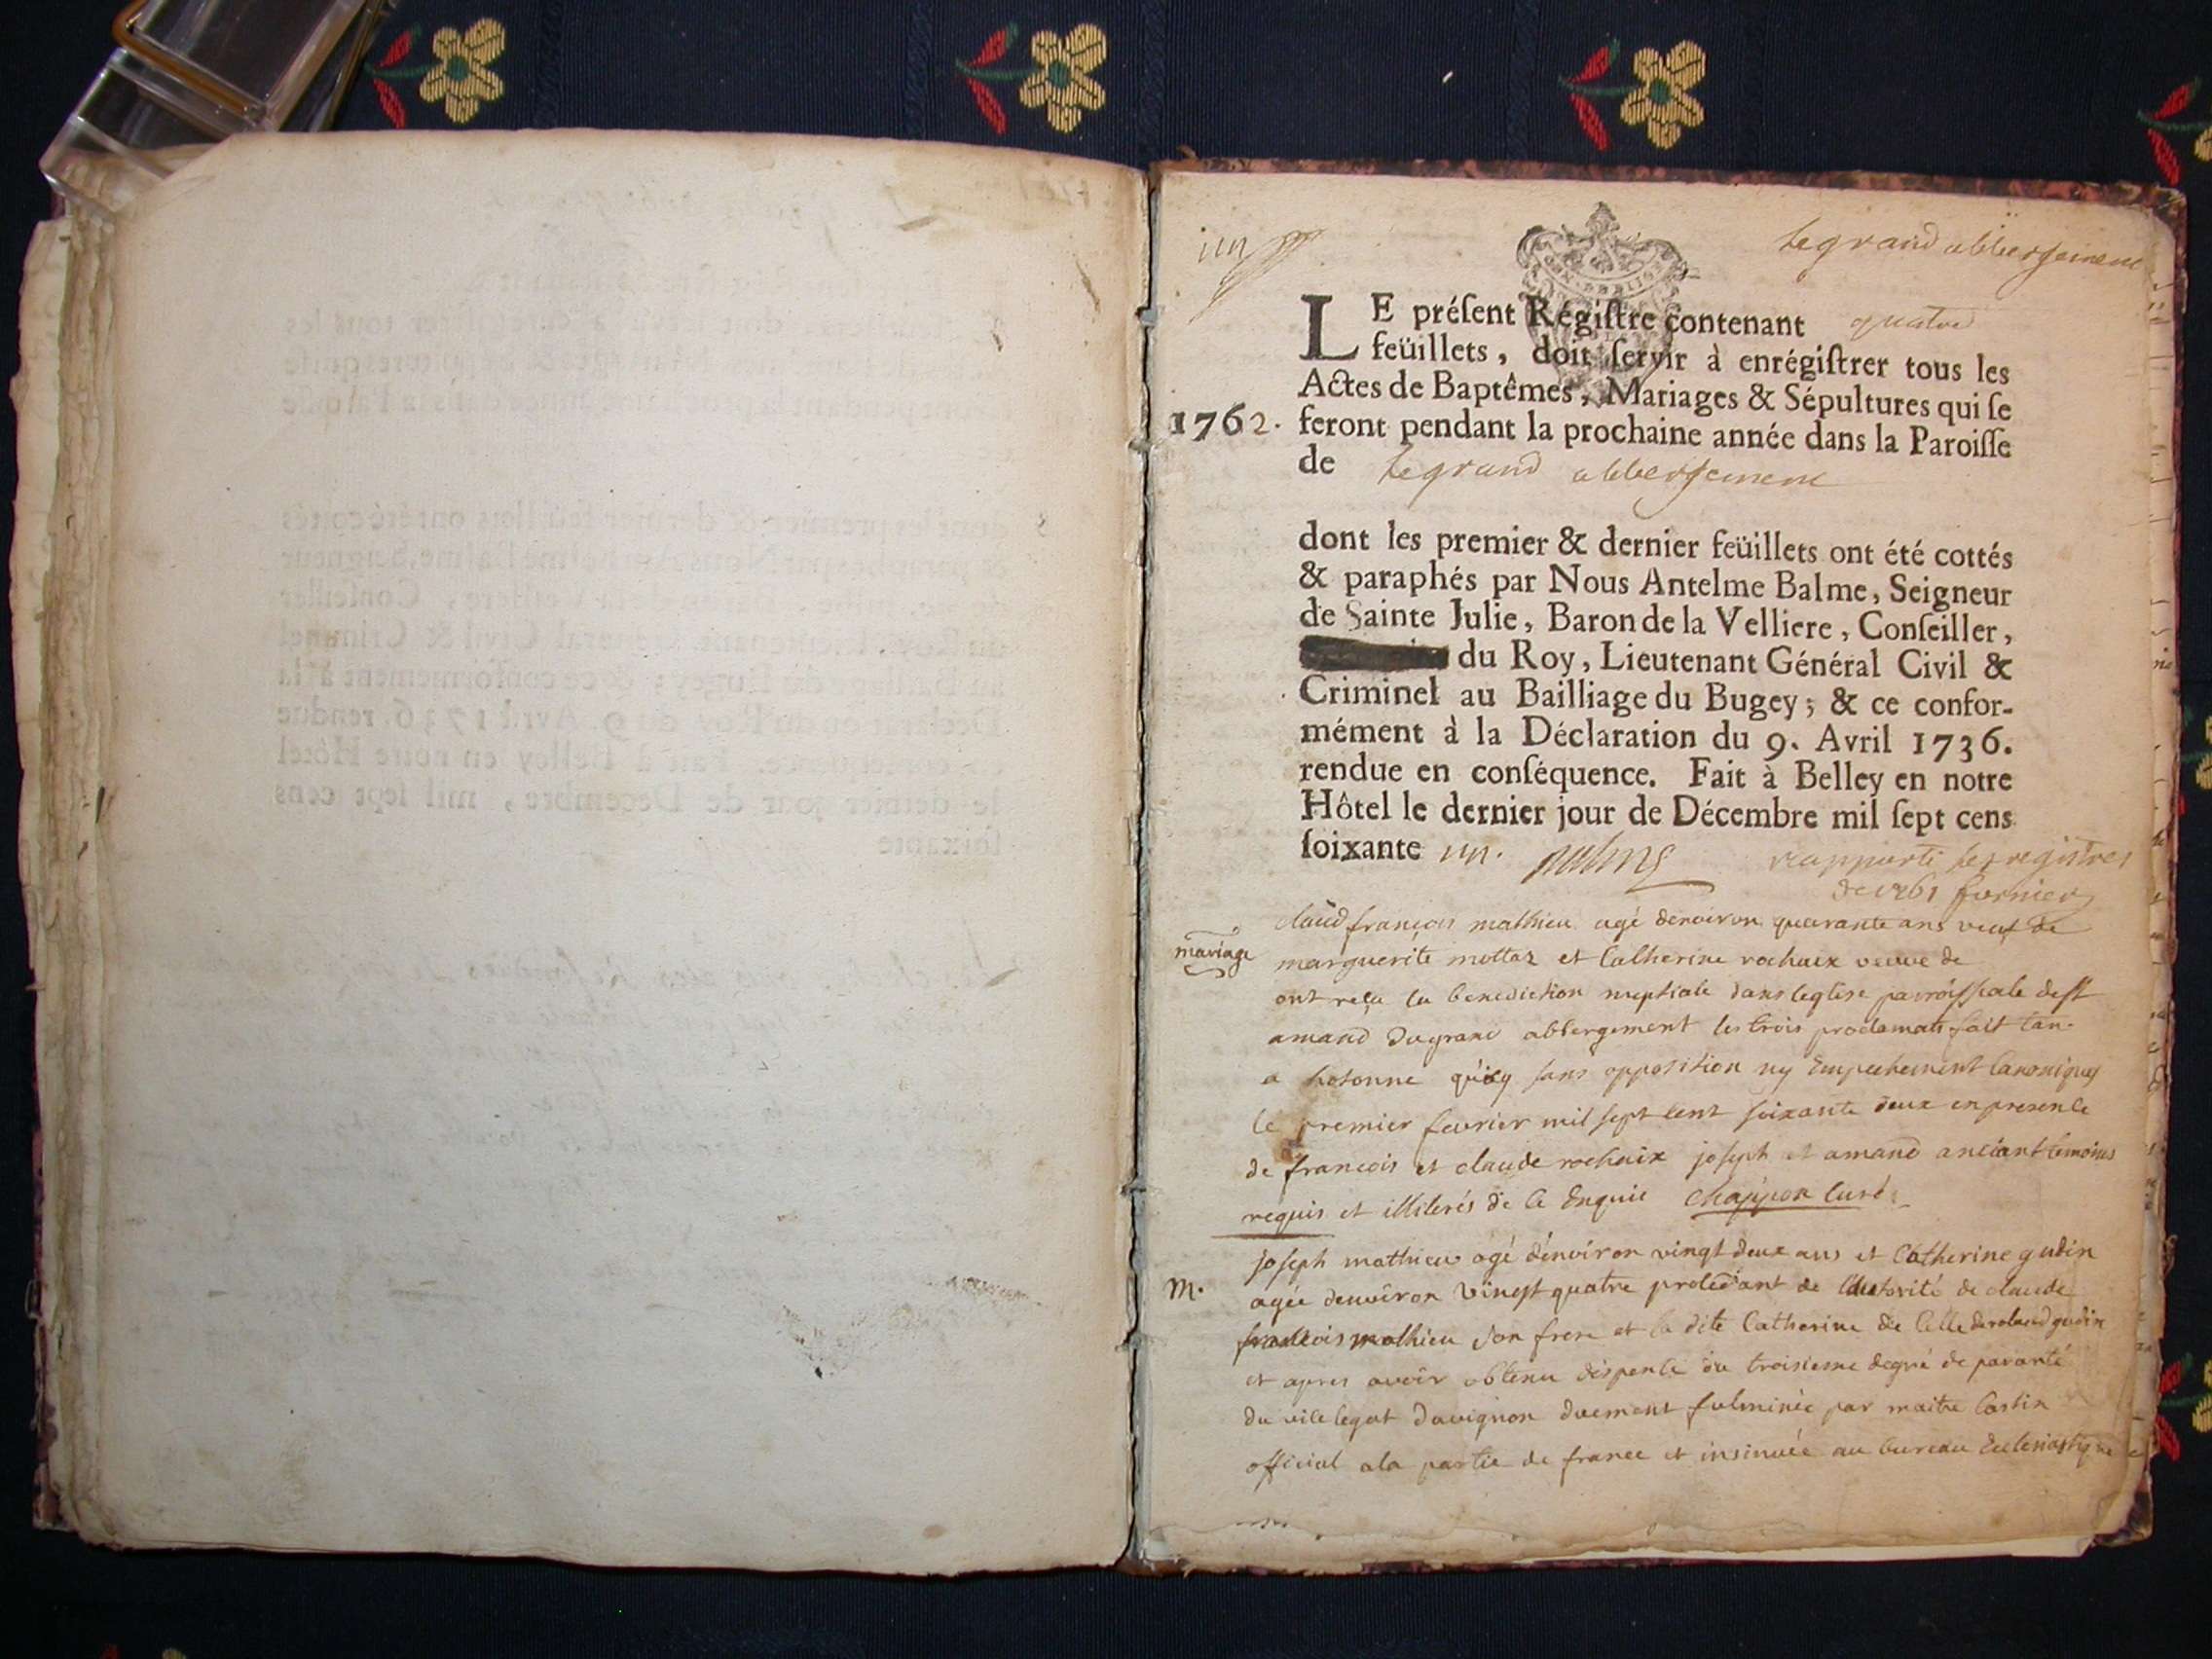 un
Le grand abbergement
GEN. DE DIION
LE préſent Régiſtre contenant quatre
feüillets, doit ſervir à enrégiſtrer tous les
Actes de Baptêmes, Mariages & Sépultures qui ſe
1762. feront pendant la prochaine année dans la Paroiſſe
de Le grand abbergement
dont les premier & dernier feüillets ont été cottés
& paraphés par Nous Antelme Balme, Seigneur
de Sainte Julie, Baron de la Velliere, Conſeiller,
du Roy, Lieutenant Général Civil &
Criminel au Bailliage du Bugey; & ce confor-
mément à la Déclaration du 9. Avril 1736.
rendue en conſéquence. Fait à Belley en notre
Hôtel le dernier jour de Décembre mil ſept cens
ſoixante un. Balme
rapporté les registres
de 1761 fornier
mariage
claud françois mathieu agé denviron quarante ans veuf de
marguerite mottaz et Catherine rochaix veuve de
ont reçu la benediction nuptiale dans leglise parroissiale de st
amand du grand abbergement les trois proclamats fait tan-
a hotonne qu'icy sans opposition ny Empechement Canoniques
le premier fevrier mil sept cent soixante deux en presence
de francois et claude rochaix joseph et amand anciant temoins
requis et illiterés de ce Enquis Chappon curé
M.
joseph mathieu agé d'environ vingt deux ans et Catherine gudin
agée denviron vingt quatre procedant de l'autorité de claude
francois mathieu son frere et la dite Catherine de Celle de roland gudin
et apres avoir obtenu dispence du troisieme degré de paranté
du vice legat davignon duement fulminée par maitre Costin
official a la partie de france et insinuée au bureau Eclesiastique